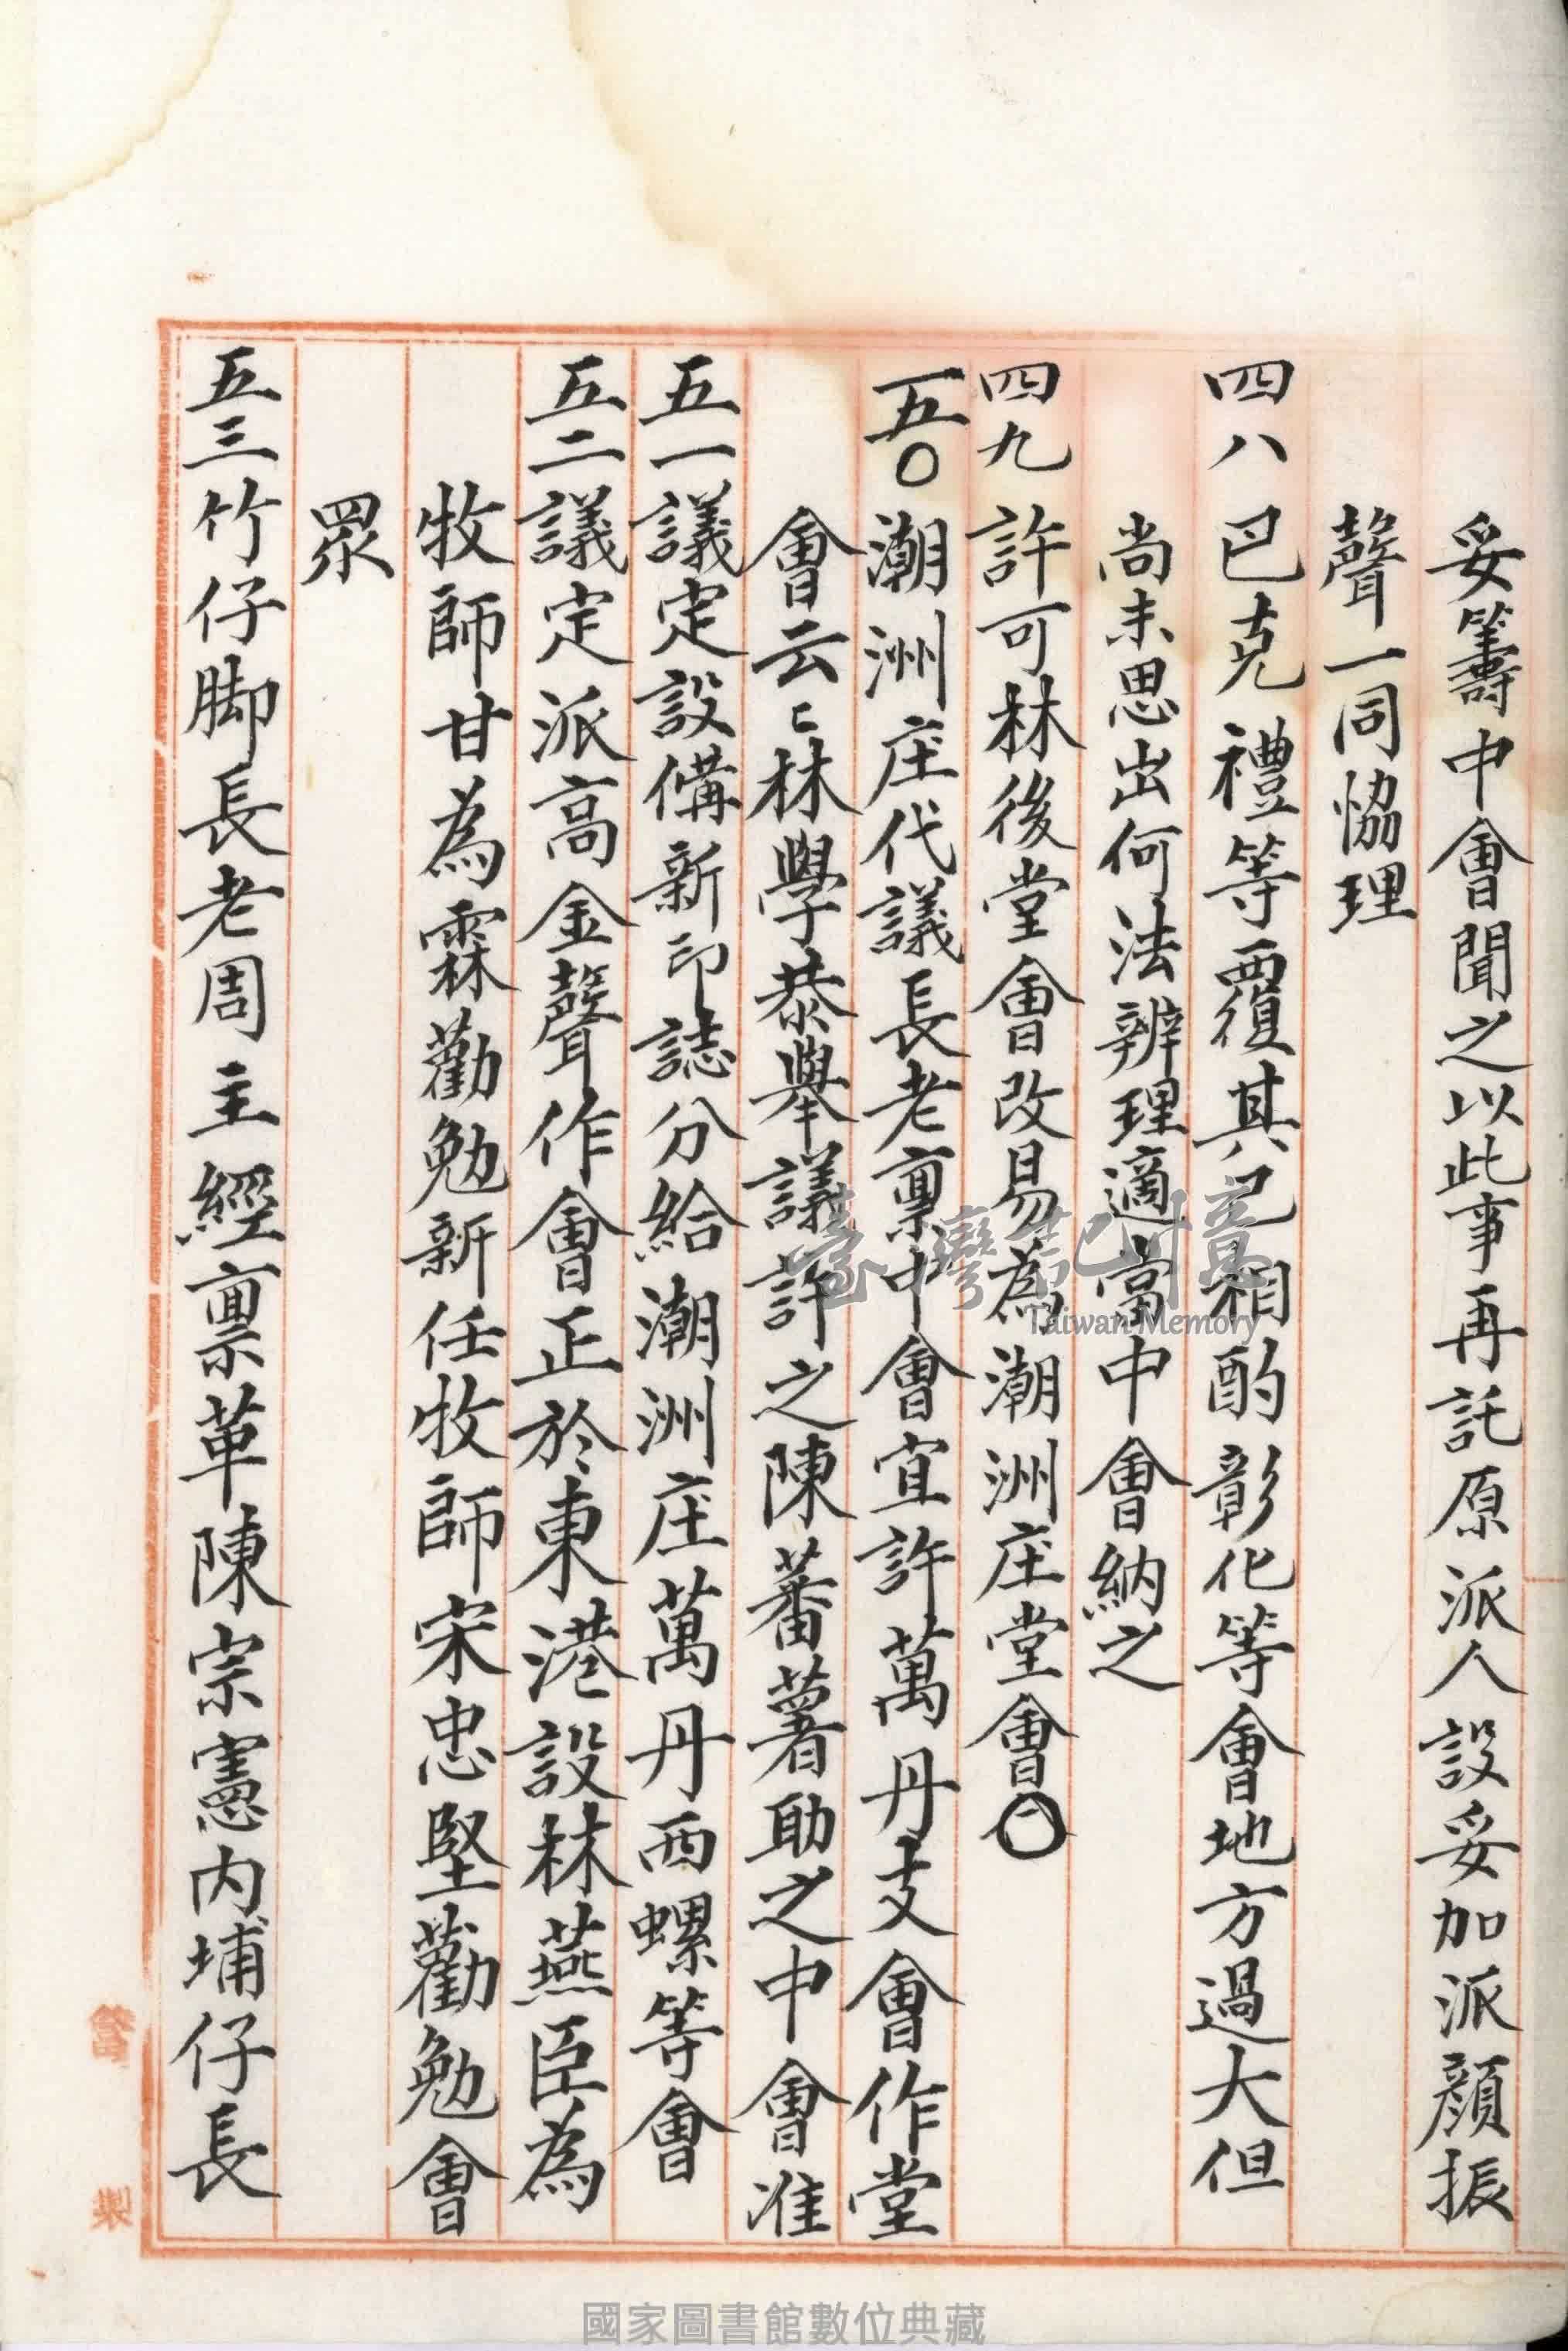 妥籌中會聞之以此事再託原派人設妥加派顏振
聲一同恊理
四八巴克禮等覆其已相酌彰化等會地方過大但
尚未思出何法辨理適當中會納之
四九許可林後堂會改易為潮洲庄堂會○
一五○潮洲庄代議長老稟中會宜許萬丹支會作堂
會云〻林學恭舉議許之陳蕃薯助之中會准
五一議定設備新印誌分給潮洲庄萬丹西螺等會
五二議定派高金聲作會正於東港設林燕臣為
牧師甘為霖勸勉新任牧師宋忠堅勸勉會
眾
五三竹仔脚長老周主經稟革陳宗憲內埔仔長
製
臺灣記憶
Taiwan Memory
國家圖書館數位典藏